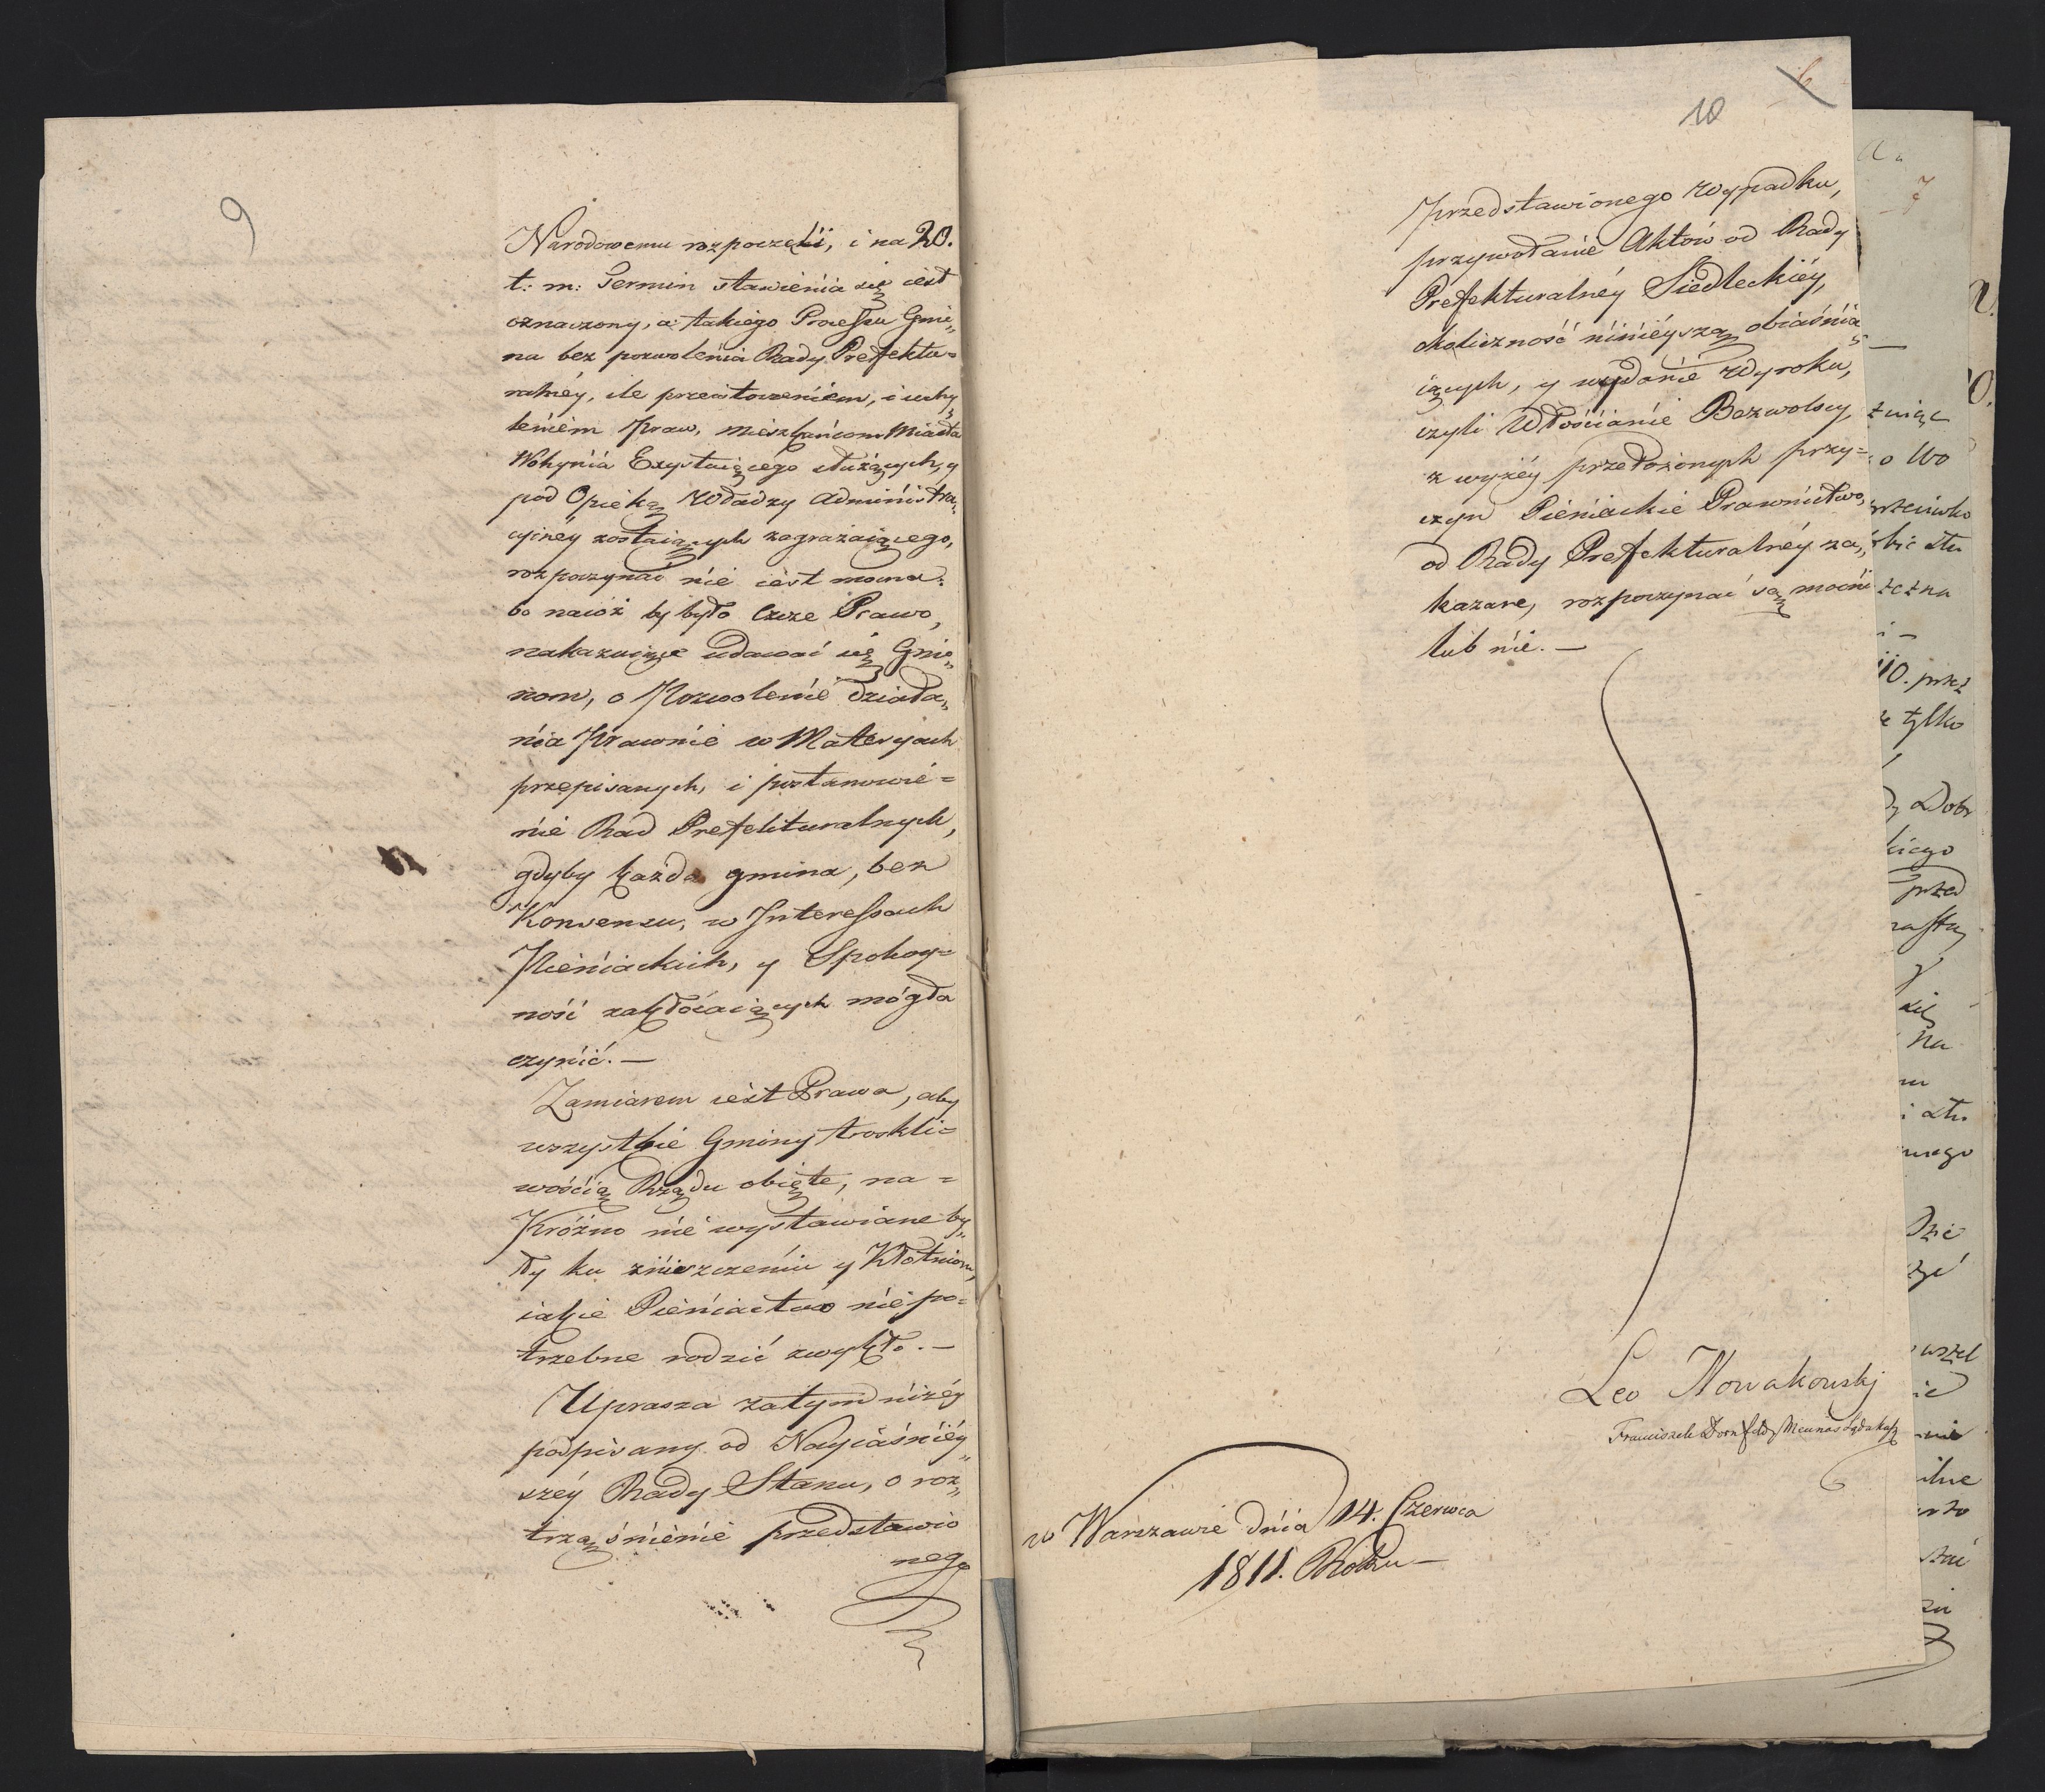 9
Narodowemu rozpoczęli, i na 20.
t: m: Termin stawienia się iest
oznaczony, a takiego Processu Gmi„
na bez pozwolenia Rady Prefektu=
ralney, ile przeistoczeniem, i uchy„
leniem Praw, Mieszkańcom Miasta
Wohynia Exystuiącego służących, y
pod Opieką Władzy Administra„
cyiney zostaiących zagrażaiącego,
rozpoczynać nie iest mocna:
bo naicóż by było Czcze Prawo,
nakazuiące udawać się Gmi„
nom, o Pozwolenie działa„
nia Prawnie w Materyach
przepisanych, i postanowie=
nie Rad Prefekturalnych,
gdyby każda gmina, bez
Konsensu, w Interessach
Pieniackich, y Spokoy=
ność zakłócaiących mogła
czynić. —
Zamiarem iest Prawa, aby
wszystkie Gminy troskli=
wością Rządu obięte, na=
Próżno nie wystawiane by„
ły ku zniszczeniu y Kłótniom,
iakie Pieniactwo niepo=
trzebne rodzić zwykło. —
Uprasza zatym niżéy
podpisany od Nayiaśniéy„
széy Rady Stanu, o roz„
trząśnienie przedstawio
nego
10
6
Przedstawionego Wypadku,
przywołanie Aktów od Rady
Prefekturalnéy Siedleckiéy,
okoliczność ninieyszą obiaśnia„
iących, y wydanie Wyroku,
czyli Włościanie Bezwolscy,
z wyżéy przełożonych przy=
czyn Pieniackie Prawnictwo,
od Rady Prefekturalnéy za„
kazane, rozpoczynać są mocni
lub nie. —
Leo Nowakowski
Franciszek Dornfeld
w Warszawie dnia 14. Czerwca
1811. Roku —
7
przeciwko
110. przez
tylko
Dobr
przed
Na